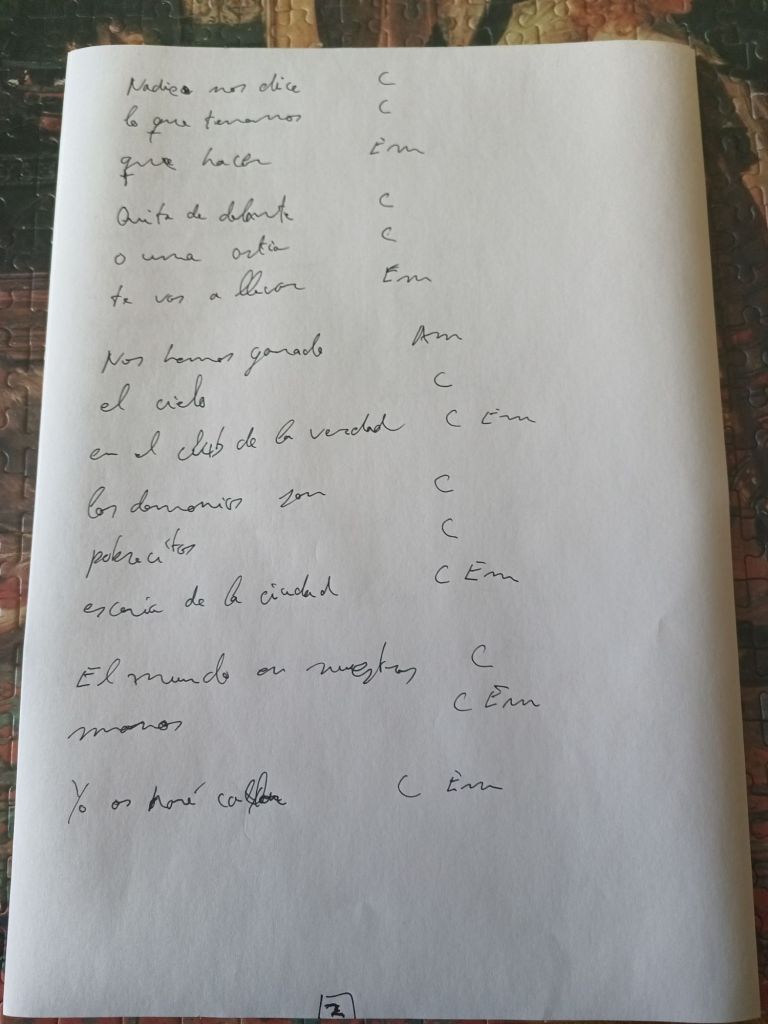 Nadie nos dice C
lo que tenemos C
que hacer Em
Quita de delante C
o una ostia C
te vas a llevar Em
Nos hemos ganado Am
el cielo C
en el club de la verdad C Em
los demonios son C
pobrecitos C
escoria de la ciudad C Em
El mundo en nuestras C
manos C Em
Yo os haré callar C Em
2